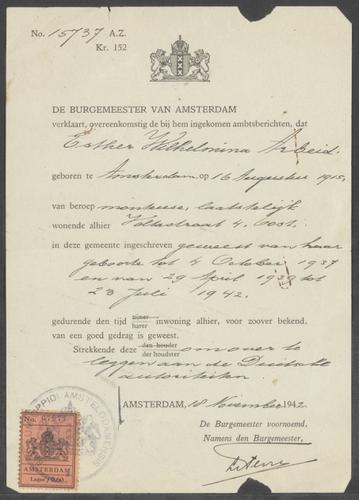 No. 15737 A.Z.
Kr. 152
DE BURGEMEESTER VAN AMSTERDAM
verklaart, overeenkomstig de bij hem ingekomen ambtsberichten, dat
Esther Wilhelmina Arbeid.
geboren te Amsterdam, op 16 Augustus 1915,
van beroep monteuse, laatstelijk
wonende alhier Voltastraat 4, Oost.
in deze gemeente ingeschreven geweest van haar
geboorte tot 4 October 1937
en van 29 April 1939 tot
23 Juli 1942.
gedurende den tijd zijner inwoning alhier, voor zoover bekend,
harer
van een goed gedrag is geweest.
Strekkende deze den houder om over te
de houdster
leggen aan de Duitsche
autoriteiten.
AMSTERDAM, 18 November 1942
De Burgemeester voornoemd,
Namens den Burgemeester,
OPPIDI AMSTELODAMENSIS
No.
AMSTERDAM
Leges